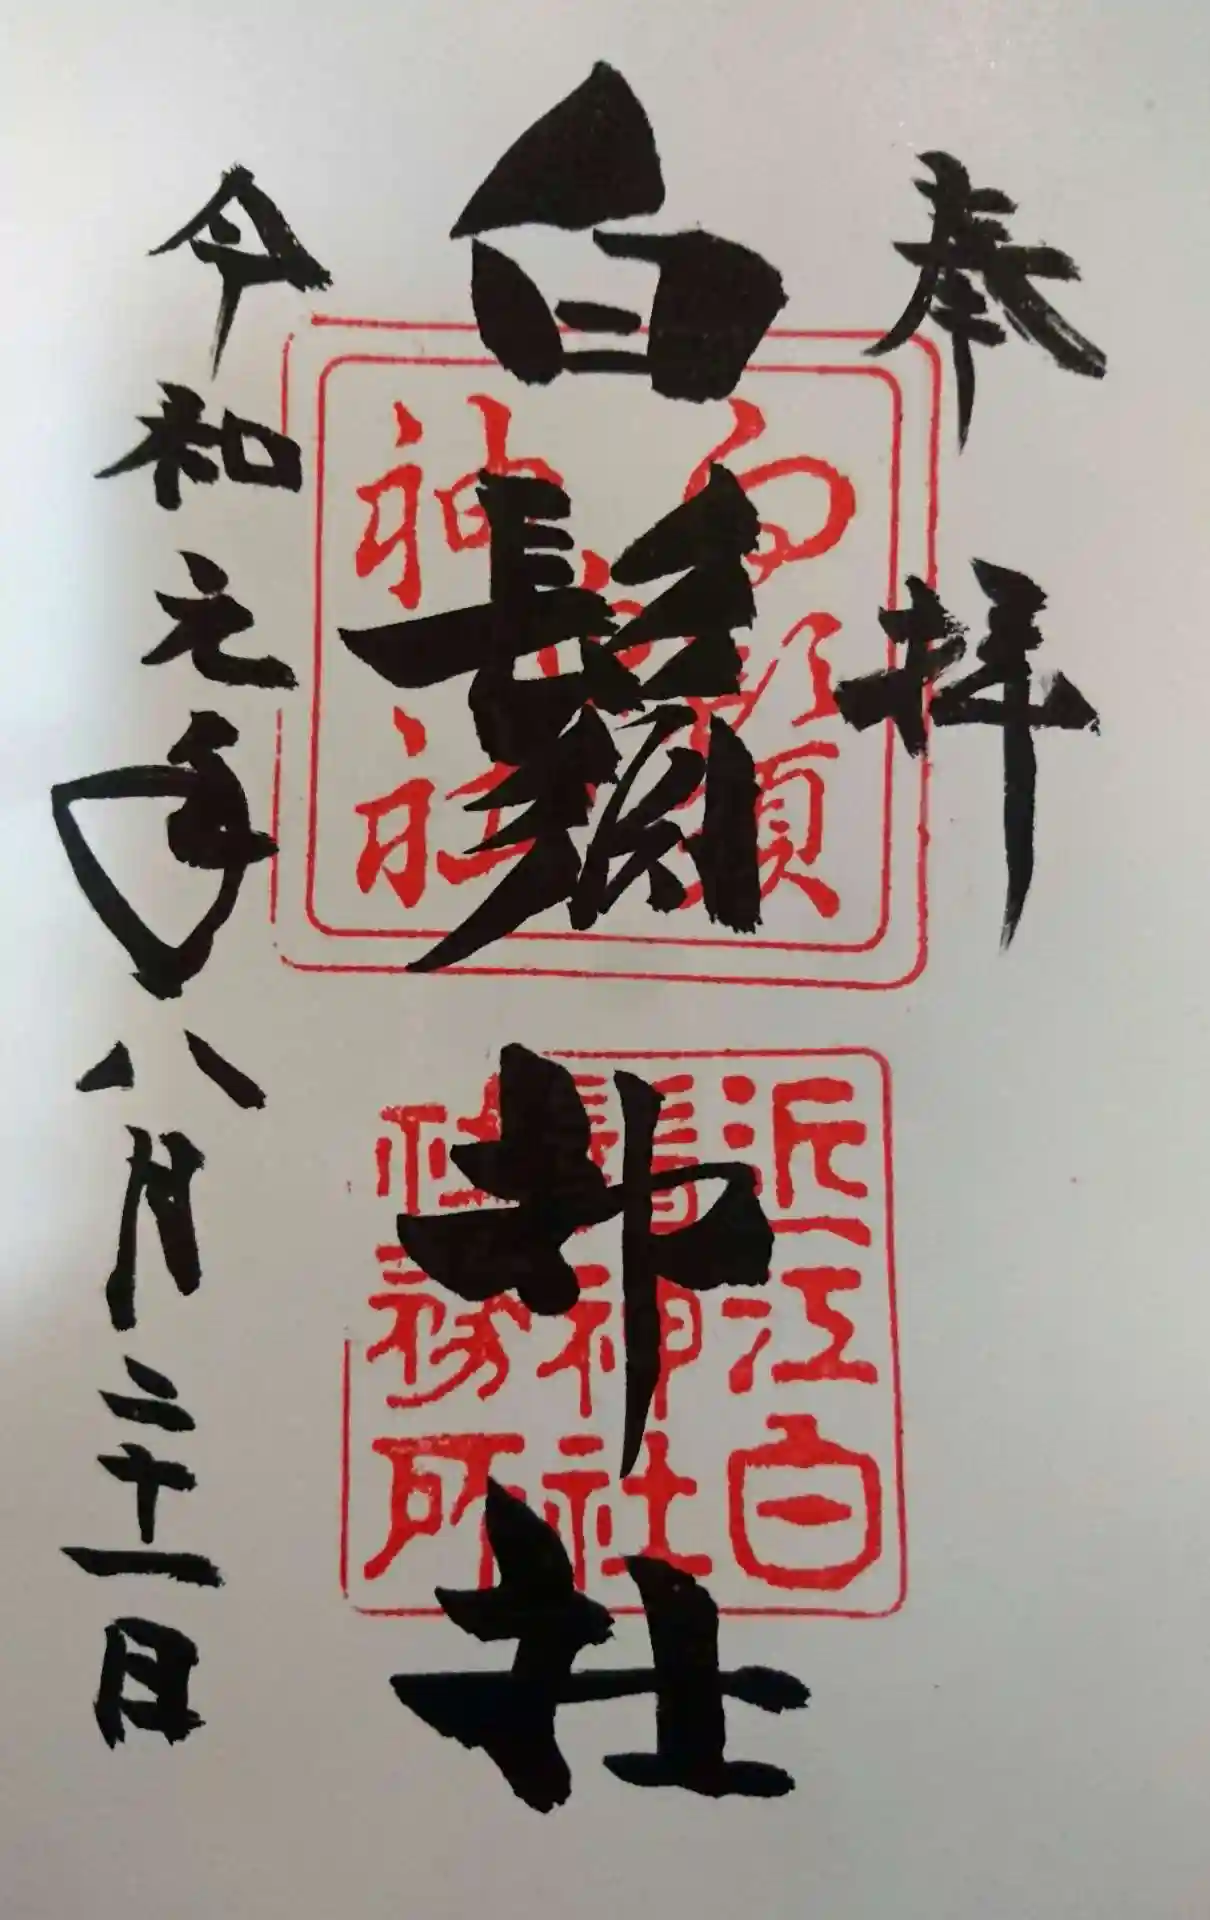 奉拝
白鬚神社
令和元年八月二十一日
白鬚
神社
近江白
鬚神社
社務所